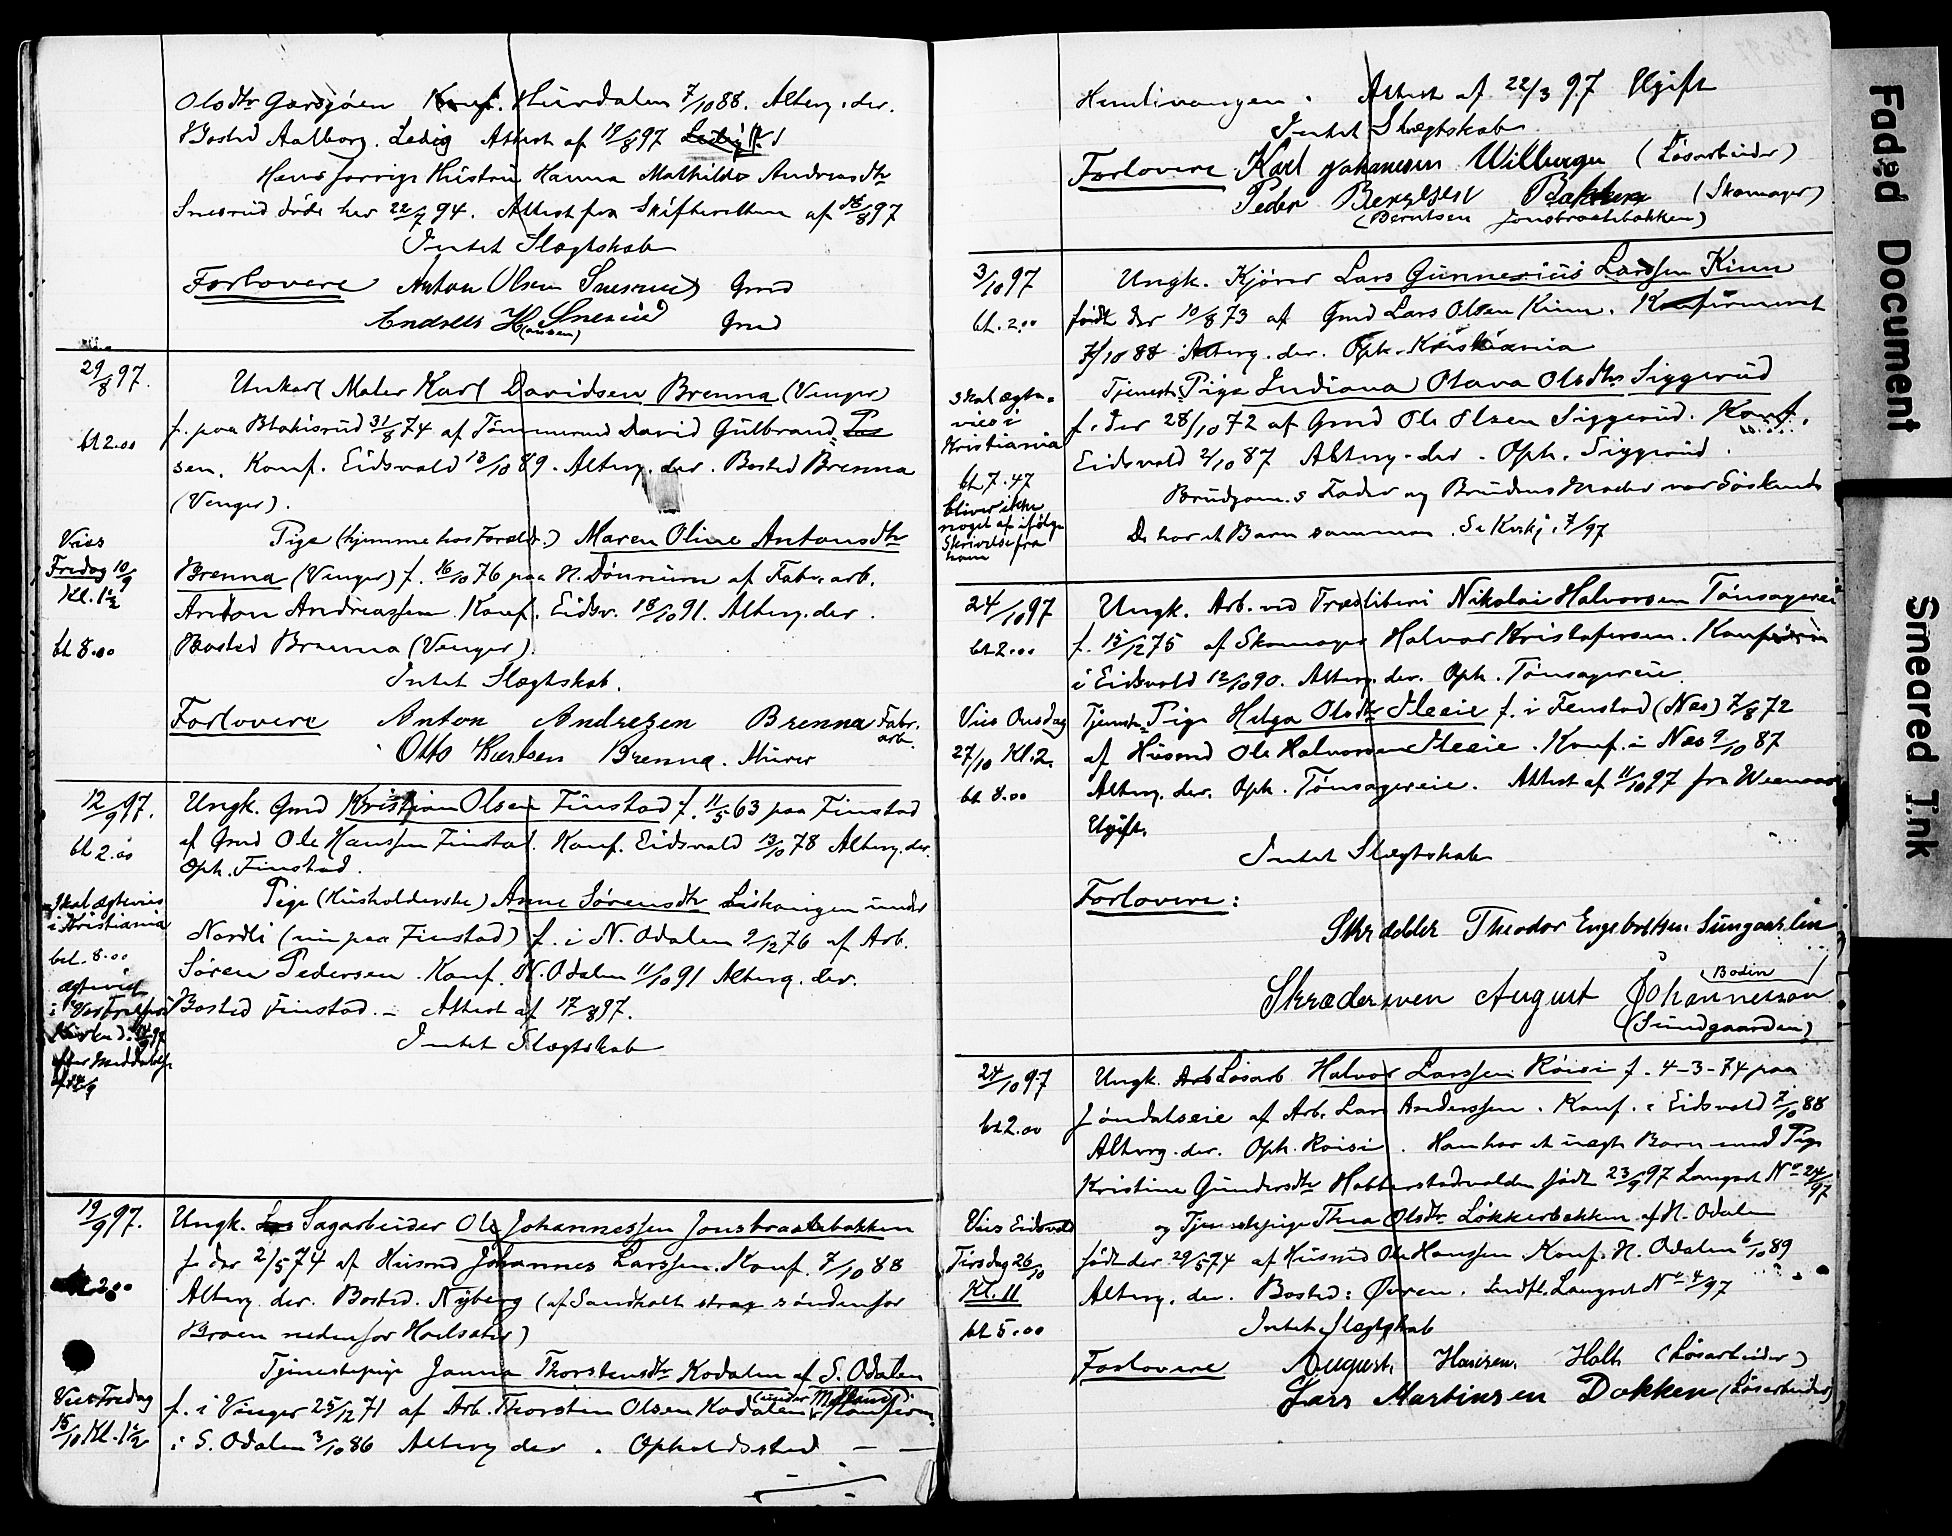 Olsdtr Garsjøen Konf. Hurdalen 7/10 88. Alterg. der.
Bosted Aalborg. Ledig Attest af 19/8 97
Hans forrige Hustru Hanna Mathilde Andreasdtr
Snesrud døde her 22/7 94. Attest fra Skifteretten af 18/8 97
Intet Slægtskab
Forlovere Anton Olsen Snesrud Grmd
Andreas H (ansen) Snesrud Grmd
29/8 97.
bt 2.00
Unkarl Maler Karl Davidsen Brenna (Venger)
f. paa Blakisrud 31/8 74 af Tømmermd David Gulbrand-
sen. Konf. Eidsvold 13/10 89. Alterg. der. Bosted Brenna
(Venger).
Vies
Fredag 10/9
Kl. 1½
bt 8.00
Pige (hjemme hos Foræld.) Maren Oline Antonsdtr
Brenna (Venger) f. 16/10 76 paa N. Dønnum af Fabr. arb.
Anton Andreassen Konf. Eidsv. 18/10 91. Alterg. der.
Bosted Brenna (Venger).
Intet Slægtskab.
Forlovere Anton Andresen Brenna Fabr. arb.
Otto Karlsen Brenna. Murer
12/9 97.
bt 2.00
Ungk. Grmd Kristian Olsen Finstad f. 11/5 63 paa Finstad
af Grmd Ole Hanssen Finstad. Konf. Eidsvold 13/10 78 Alterg. der.
Oph. Finstad.
Skal ægtevies
i Kristiania
bet. 8.00
ægteviet
i Vor Frelsers
Kirke d.
efter Meddelelse
Pige (Husholderske) Anne Sørensdtr Liskaugen under
Nordli (nu paa Finstad) f. i N. Odalen 9/12 76 af Arb.
Søren Pedersen Konf. N. Odalen 11/10 91 Alterg. der.
Bosted Finstad. – Attest af 17/8 97.
Intet Slægtskab
19/9 97.
bt 2.00
Ungk. Sagarbeider Ole Johannessen Jonsbraatebakken
f. der 2/5 74 af Husmd Johannes Larssen. Konf. 7/10 88
Alterg. der. Bosted. Nyberg (af Sandholt strax søndenfor
Broen nedenfor Holsæter)
Vies Fredag
15/10 Kl. 1½
Tjenestepige Janna Thorstensdtr Kodalen af S. Odalen
f. i Vinger 25/12 71 af Arb. Thorsten Olsen Kodalen (under) Konfirm.
i S. Odalen 3/10 86 Alterg der. Opholdssted — —
Attest af 22/3 97 Ugift
Intet Slægtskab
Forlovere Karl Johansen Wilberger (Løsarbeider)
Peder Berntsen Bakken (Skomager)
(Berntsen Jonsbraatebakken)
3/10 97
bt. 2.00
Ungk. Kjører Lars Gunnerius Larssen Kinn
født der 10/8 73 af Grmd Lars Olsen Kinn. Konfirmeret
7/10 88 Alterg. der. Oph. Kristiania
Skal ægte-
vies i
Kristiania
bt. 7.47
bliver ikke
noget af ifølge
Skrivelse fra
ham
Tjenest. Pige Indiana Olava Olsdtr Siggerud
f. der 28/10 72 af Grmd Ole Olsen Siggerud. Konf.
Eidsvold 2/10 87 Alterg. der. Oph. Siggerud.
Brudgom.s Fader og Brudens Moder var Søskende
De har et Barn sammen. Se Kirkj. 7/97
24/10 97
bt 2.00
Ungk. Arb. ved Træsliberi Nikolai Halvorsen Tønsagereie
f. 15/12 75 af Skomager Halvor Kristofersen. Konf
i Eidsvold 12/10 90. Alterg. der. Oph. Tønsagereie.
Vies Onsdag
27/10 Kl. 2.
bt 8.00
Tjenest. Pige Helga Olsdtr Heeie f. i Fenstad (Næs) 7/8 72
af Husmd Ole Halvorsen Heeie. Konf. i Næs 9/10 87
Alterg. der. Oph. Tønsagereie. Attest af 11/10 97 fra
Ugift.
Intet Slægtskab
Forlovere:
Skrædder Theodor Engebretsen Sundgaarden
Skrædersven August Johannesson
Bodin
(Sundgaarden)
24/10 97
bt 2.00
Ungk. Løsarb Halvor Larssen Røisi f. 4-3-74 paa
Jøndalseie af Arb. Lars Anderssen. Konf. i Eidsvold 7/10 88
Alterg. der. Oph. Røisi. Han har et uægte Barn med Pige
Kristine Gundersdtr Habberstadvalden født 23/9 97 No 24/97
Vies Eidsvold
Tirsdag 26/10
Kl. 11
bt 5.00
og Tjenestepige Thea Olsdtr Løkkerbakken af N. Odalen
født der 29/5 74 af Husmd Ole Hanssen Konf. N. Odalen 6/10 89
Alterg. der. Bosted: Øvren. No 4/97
Intet Slægtskab
Forlovere August Hansen Holt (Løsarbeider)
Lars Martinsen Dokken (Løsarbeider)
Faded Document
Smeared Ink